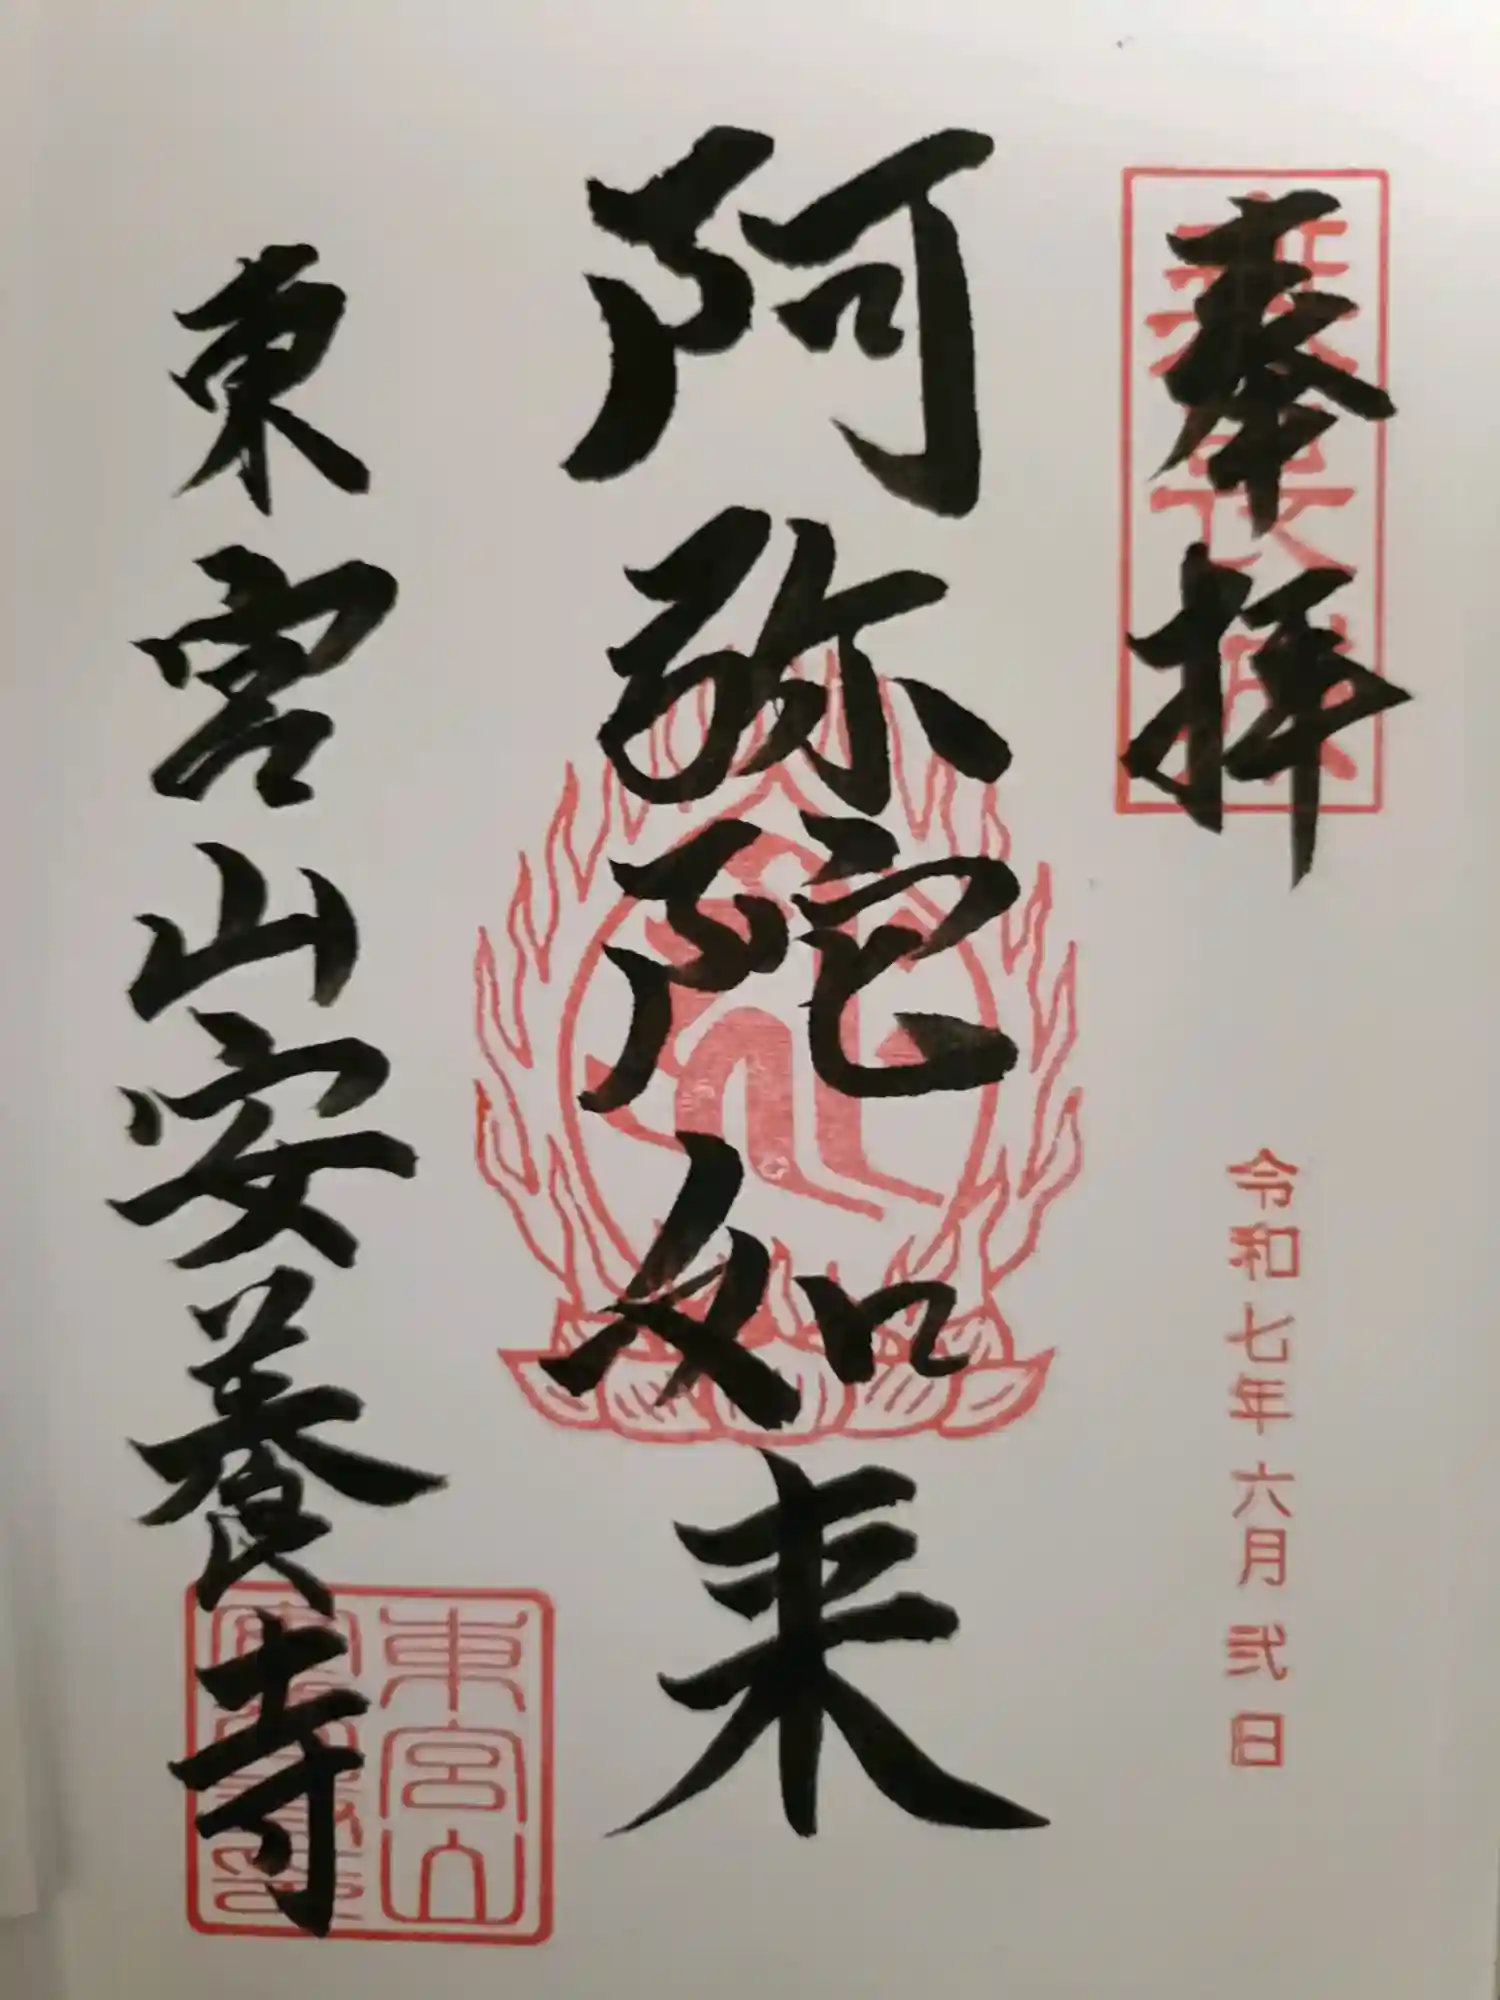 奉拝
令和七年六月弐日
阿弥陀如来
東宮山安養寺
東宮山